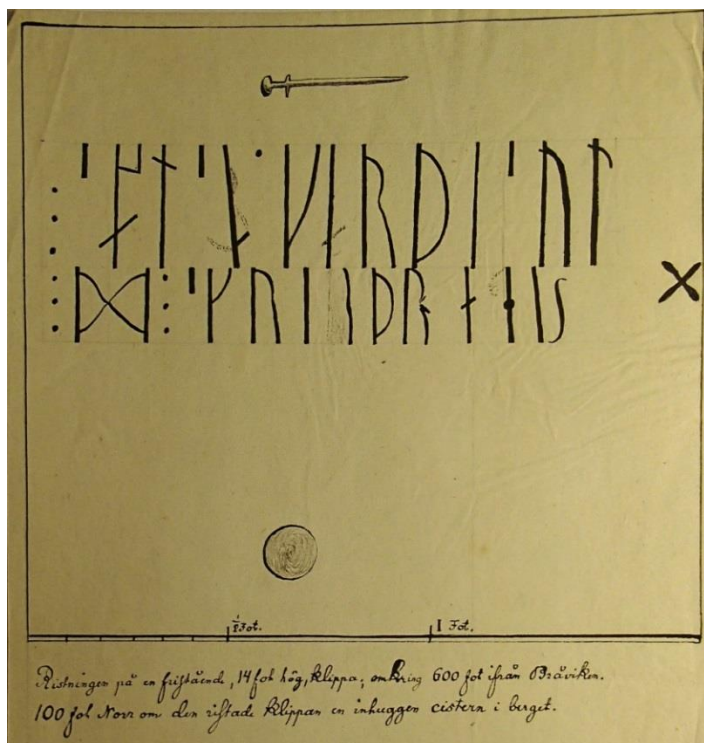 ᚴᛆᚱᚦᛁᛌᚢᛚ
ᛞ
½ Fot. I Fot.
Ristningen på en fristående, 14 fot hög, klippa; omkring 600 fot ifrån Bråviken.
100 fot Norr om den ristade klippan en inhuggen cistern i berget.